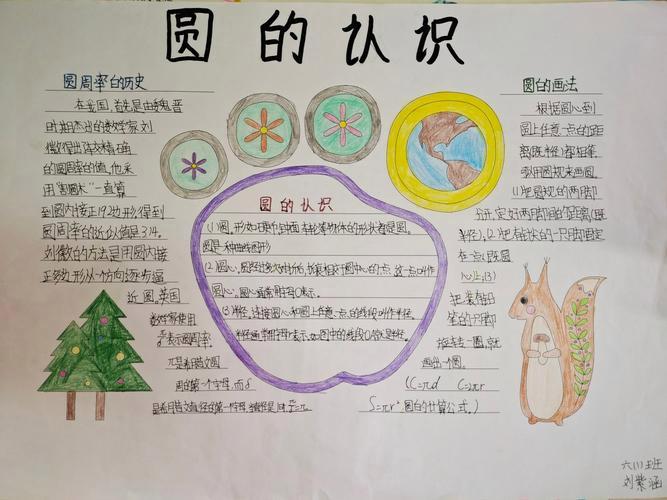 圆的认识
圆周率的历史
在我国,首先是由魏晋
时期杰出的数学家刘
徽得出较精确
的圆周率的值,他采
用"割圆术"一直算
到圆内接正192边形得到
圆周率的近似值是3.14。
刘徽的方法是用圆内接
正多边形从一个方向逐步逼
近圆,英国
数学家使用
表示圆周率。
π是希腊文圆
周的第一个字母,而δ
是希腊文直径的第一个字母
圆的认识
(1)圆,形如的形状者是圆。
圆是一种曲线图形
(2)圆心,圆经过次对折后,折痕相交于圆中心的点,这一点叫作
圆心。圆心通常用字母O表示。
(3)半径,连接圆心和圆上任意一点的线段叫作半径。
半径通常用字母r表示,如图中的线段OA就是半径。
圆白的画法
根据圆心到
圆上任意一点的距
离(既半径)都相等
要用圆规来画圆,
(1)把圆规的两脚
分开,定好两脚间的距离(既
半径),(2)把有针尖的一只脚固定
在一点(既圆
心)上,(3)
把装有铅
笔的只脚
旋转一圈,就
画出一个圆。
(C=πd C=πr
S=πr² 圆白的计算公式。)
六(1)班
刘紫涵